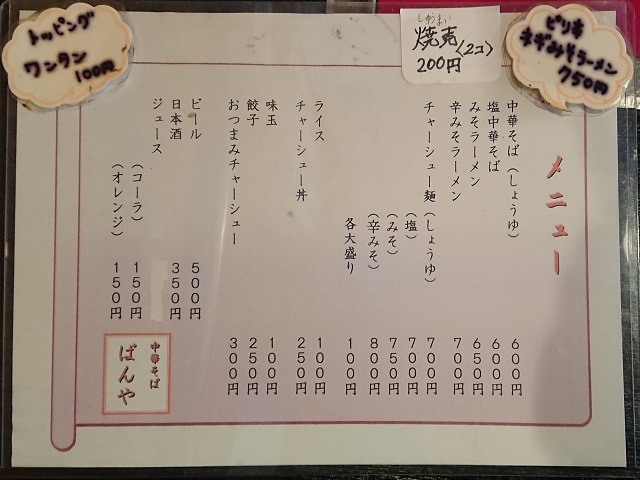 トッピング
ワンタン
100円
しゅうまい
焼売〈2コ〉
200円
ピリ辛
ネギみそラーメン
750円
メニュー
中華そば（しょうゆ） 600円
塩中華そば 600円
みそラーメン 650円
辛みそラーメン 700円
チャーシュー麺（しょうゆ） 700円
（塩） 700円
（みそ） 750円
（辛みそ） 800円
各大盛り 100円
ライス 100円
チャーシュー丼 250円
味玉 100円
餃子 250円
おつまみチャーシュー 300円
ビール 500円
日本酒 350円
ジュース
（コーラ） 150円
（オレンジ） 150円
中華そば
ばんや